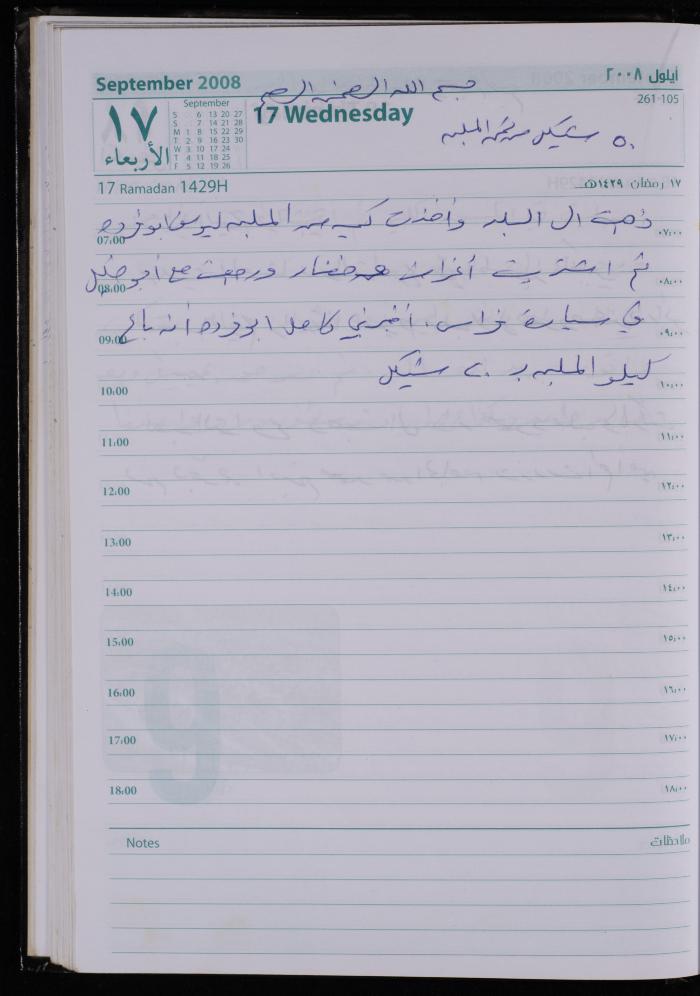 September 2008
أيلول ٢٠٠٨
بسم الله الرحمن الرحيم
261-105
17 Wednesday
١٧
الأربعاء
September
S 6 13 20 27
S 7 14 21 28
M 1 8 15 22 29
T 2 9 16 23 30
W 3 10 17 24
T 4 11 18 25
F 5 12 19 26
٥٠ شيكل من ثمن الملبن
17 Ramadan 1429H
١٧ رمضان ١٤٢٩هـ
ذهبت الى البلد وأخذت كيس من الملبن ليوسف ابو فرده
07:00 ٠٧:٠٠
ثم اشتريت أغراض خضار ورجعت مع ابو خليل
08:00 ٠٨:٠٠
في سيارة فراس. أخبرني كامل ابو فرده أنه باع
09:00 ٠٩:٠٠
كيلو الملبن بـ ٢٠ شيكل
10:00 ١٠:٠٠
11:00 ١١:٠٠
12:00 ١٢:٠٠
13:00 ١٣:٠٠
14:00 ١٤:٠٠
15:00 ١٥:٠٠
16:00 ١٦:٠٠
17:00 ١٧:٠٠
18:00 ١٨:٠٠
Notes ملاحظات